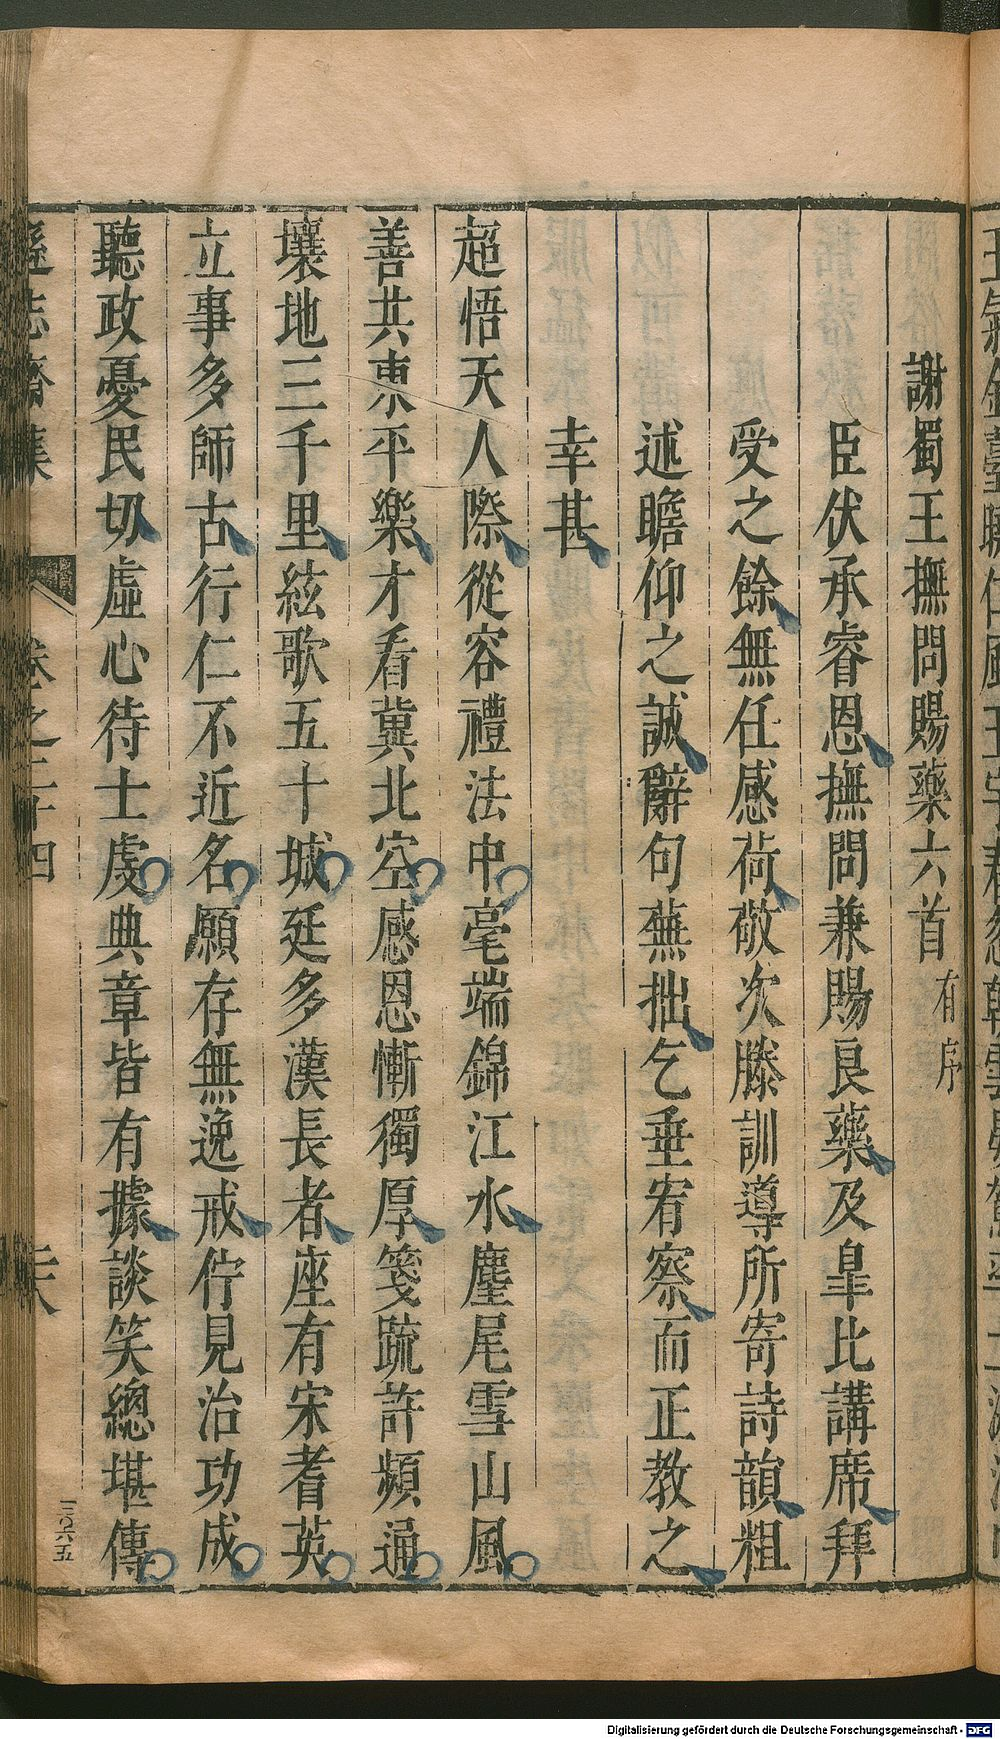 謝蜀王撫問賜藥六首有序
臣伏承睿恩撫問兼賜良藥及皐比講席拜
受之餘無任感荷敬次滕訓導所寄詩韻粗
述瞻仰之誠辭句蕪拙乞垂宥察而正教之
幸甚
超悟天人際從容禮法中毫端錦江水麈尾雪山風
善共東平樂才看冀北空感恩慚獨厚箋䟽許頻通
壤地三千里絃歌五十城延多漢長者座有宋耆英
立事多師古行仁不近名願存無逸戒佇見治功成
聽政憂民切虛心待士虔典章皆有據談笑總堪傳
遜志齋集 卷之二十四
三〇六五
Digitalisierung gefördert durch die Deutsche Forschungsgemeinschaft - DFG